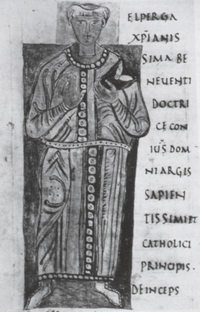 ELPERGA
XP̄IANIS
SIMA BE
NEVENTI
DOCTRI
CE CON
IUS DOM
NI ARGIS
SAPIEN
TISSIMI ET
CATHOLICI
PRINCIPIS.
DEINCEPS